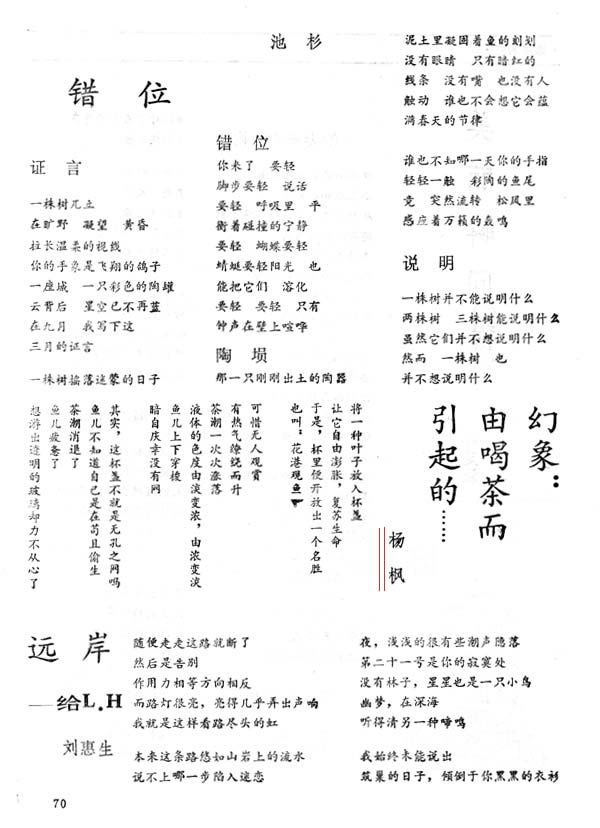 池杉
错位
证言
一株树兀立
在旷野 凝望 黄昏
拉长温柔的视线
你的手象是飞翔的鸽子
一座城 一只彩色的陶罐
云背后 星空已不再蓝
在九月 我写下这
三月的证言
一株树摇落迷蒙的日子
错位
你来了 要轻
脚步要轻 说话
要轻 呼吸里 平
衡着碰撞的宁静
要轻 蝴蝶要轻
蜻蜓要轻阳光 也
能把它们 溶化
要轻 要轻 只有
钟声在壁上喧哗
陶埙
那一只刚刚出土的陶器
泥土里凝固着鱼的刻划
没有眼睛 只有暗红的
线条 没有嘴 也没有人
触动 谁也不会想它会蕴
满春天的节律
谁也不知哪一天你的手指
轻轻一触 彩陶的鱼尾
竟 突然流转 松风里
感应着万籁的轰鸣
说明
一株树并不能说明什么
两株树 三株树能说明什么
虽然它们并不想说明什么
然而 一株树 也
并不想说明什么
幻象：
由喝茶而
引起的……
杨枫
将一种叶子放入杯盏
让它自由膨胀，复苏生命
于是，杯里便开放出一个名胜
也叫：花港观鱼
可惜无人观赏
有热气缭绕而升
茶潮一次次涨落
液体的色度由淡变浓，由浓变淡
鱼儿上下穿梭
暗自庆幸没有网
其实，这杯盏不就是无孔之网吗
鱼儿不知道自己是在苟且偷生
茶潮消退了
鱼儿疲惫了
想游出透明的玻璃却力不从心了
远岸
——给L.H
刘惠生
随便走走这路就断了
然后是告别
作用力相等方向相反
而路灯很亮，亮得几乎弄出声响
我就是这样看路尽头的虹
本来这条路悠如山岩上的流水
说不上哪一步陷入迷恋
夜，浅浅的很有些潮声隐落
第二十一号是你的寂寞处
没有林子，星星也是一只小鸟
幽梦，在深海
听得清另一种啼鸣
我始终未能说出
筑巢的日子，倾倒于你黑黑的衣衫
70